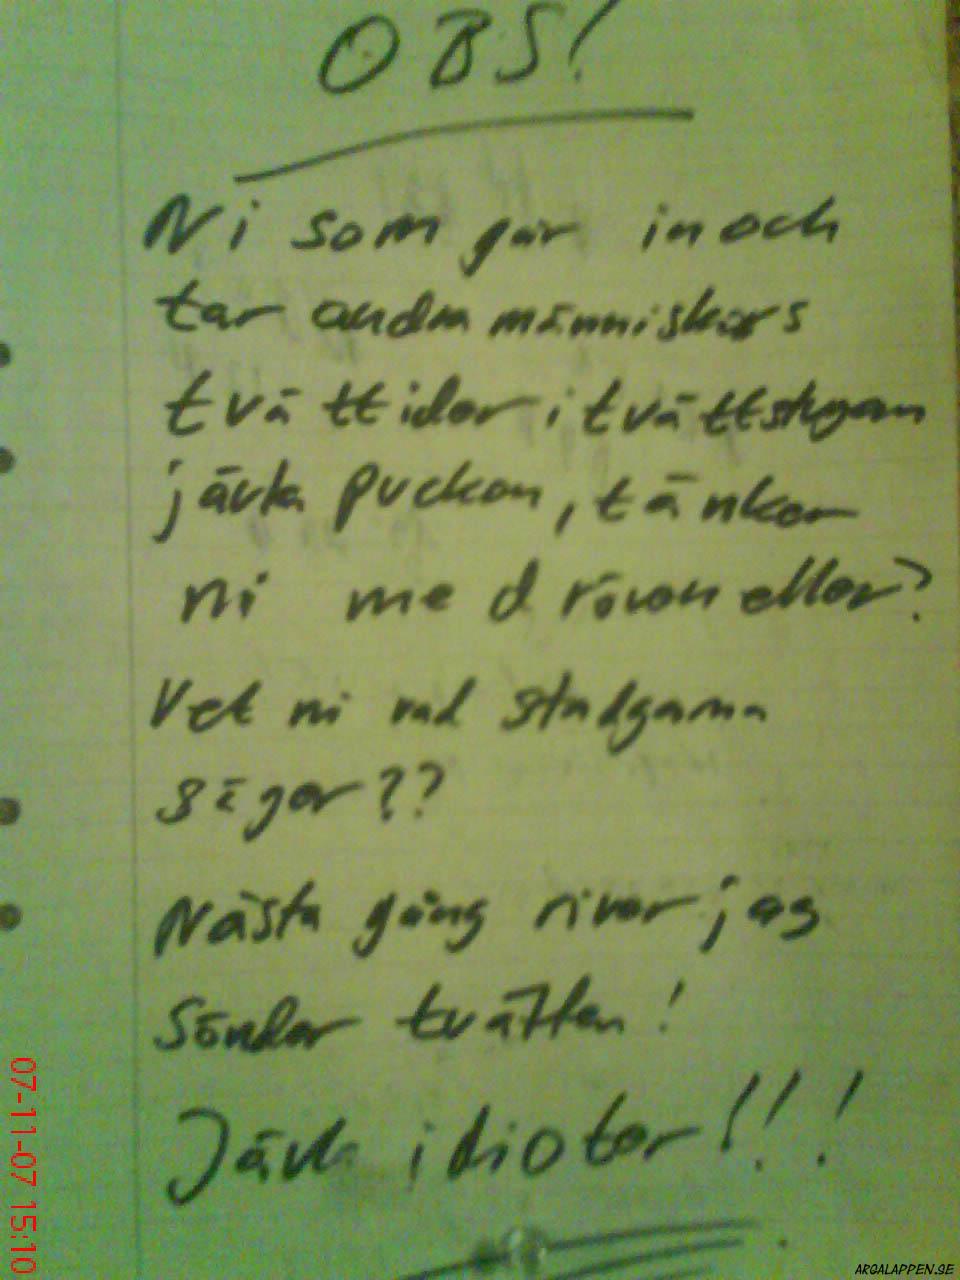 OBS!
Ni som går in och
tar andra människors
tvättider i tvättstugan
jävla puckon, tänker
ni med röven eller?
Vet ni vad stadgarna
säger??
Nästa gång river jag
sönder tvätten!
Jävla idioter!!!
07-11-07 15:10
ARGALAPPEN.SE